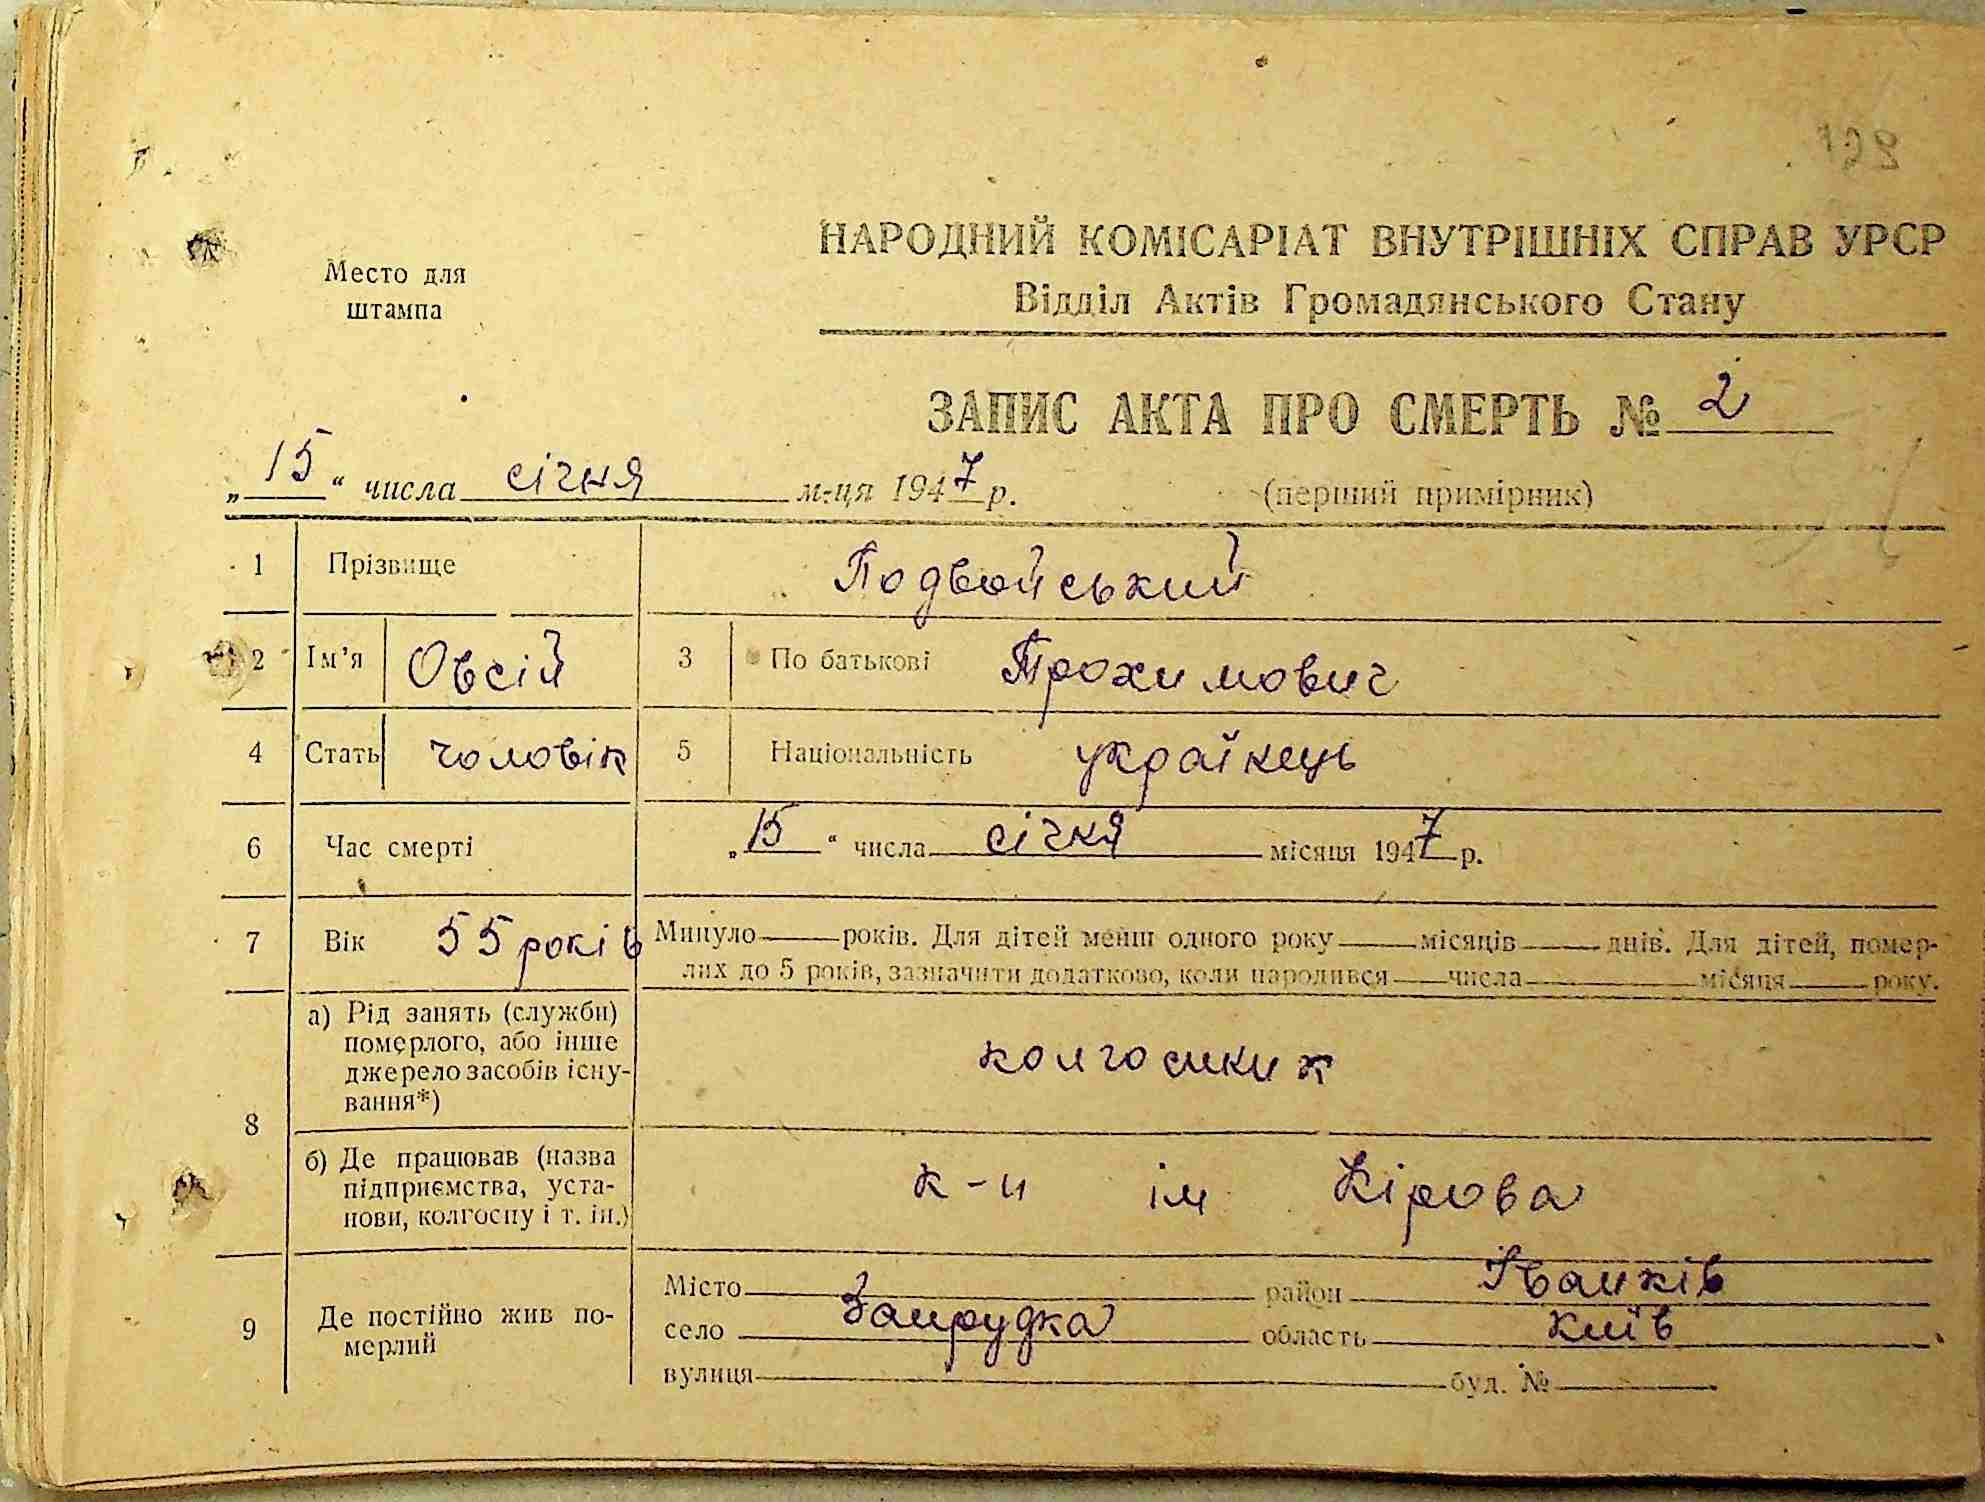 128
НАРОДНИЙ КОМІСАРІАТ ВНУТРІШНІХ СПРАВ УРСР
Место для
штампа
Відділ Актів Громадянського Стану
ЗАПИС АКТА ПРО СМЕРТЬ № 2
„15“ числа січня м-ця 1947 р. (перший примірник)
1 Прізвище Подвойський
2 Ім'я Овсій 3 По батькові Трохимович
4 Стать чоловік 5 Національність українець
6 Час смерті „15“ числа січня місяця 1947 р.
7 Вік 55 років Минуло — років. Для дітей менш одного року — місяців — днів. Для дітей, помер-
лих до 5 років, зазначити додатково, коли народився — числа — місяця — року.
8 а) Рід занять (служби)
померлого, або інше
джерело засобів існу-
вання*)
колгоспник
б) Де працював (назва
підприємства, уста-
нови, колгоспу і т. ін.)
к-п ім Кірова
9 Де постійно жив по-
мерлий
Місто район Іванків
село Запрудка область Київ
вулиця буд. №